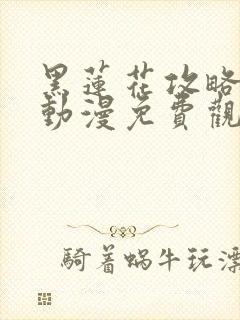 黑蓮花攻略
動漫免費觀
騎着蝸牛玩漂